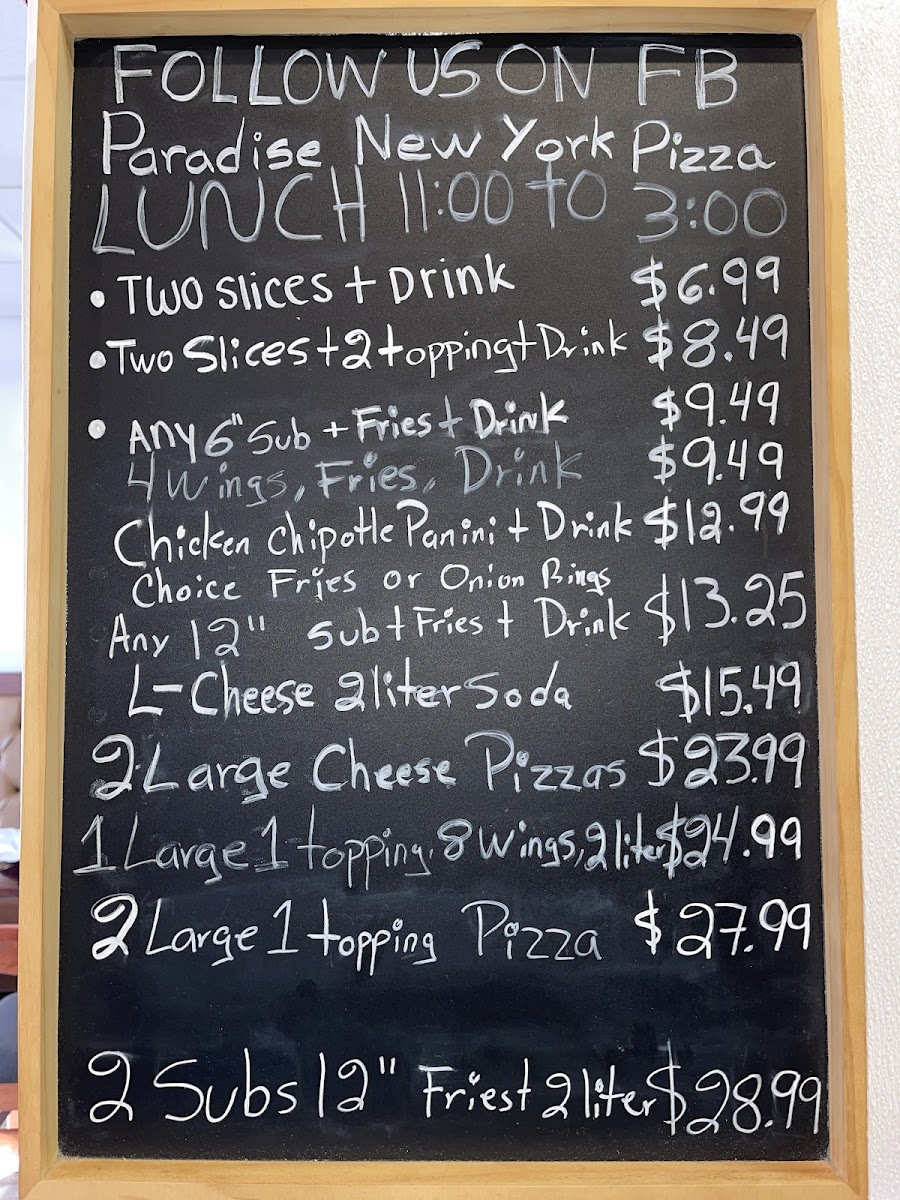 FOLLOW US ON FB
Paradise New York Pizza
LUNCH 11:00 TO 3:00
• Two slices + Drink $6.99
• Two Slices + 2 topping + Drink $8.49
• Any 6" Sub + Fries + Drink $9.49
4 Wings, Fries, Drink $9.49
Chicken Chipotle Panini + Drink $12.99
Choice Fries or Onion Rings
Any 12" Sub + Fries + Drink $13.25
L-Cheese 2 liter Soda $15.49
2 Large Cheese Pizzas $23.99
1 Large 1 topping, 8 Wings, 2 liter $24.99
2 Large 1 topping Pizza $27.99
2 Subs 12" Fries + 2 liter $28.99